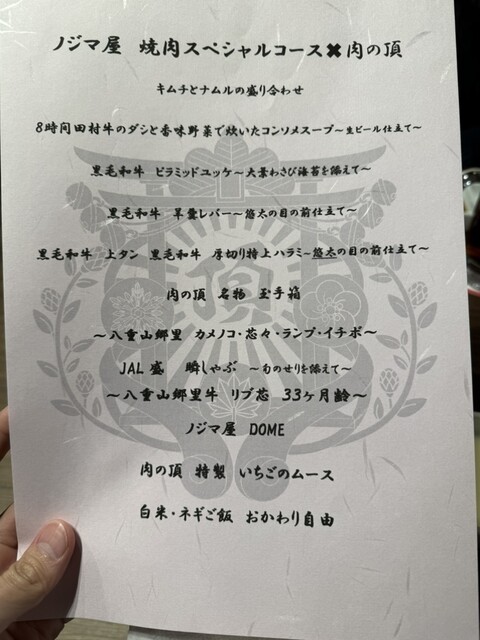 ノジマ屋 焼肉スペシャルコース✖肉の頂
キムチとナムルの盛り合わせ
8時間田村牛のダシと香味野菜で炊いたコンソメスープ〜生ビール仕立て〜
黒毛和牛 ピラミッドユッケ〜大葉わさび海苔を添えて〜
黒毛和牛 羊羹レバー〜悠太の目の前仕立て〜
黒毛和牛 上タン 黒毛和牛 厚切り特上ハラミ〜悠太の目の前仕立て〜
肉の頂 名物 玉手箱
〜八重山郷里 カメノコ・芯々・ランプ・イチボ〜
JAL盛 瞬しゃぶ 〜旬のせりを添えて〜
〜八重山郷里牛 リブ芯 33ヶ月齢〜
ノジマ屋 DOME
肉の頂 特製 いちごのムース
白米・ネギご飯 おかわり自由
頂